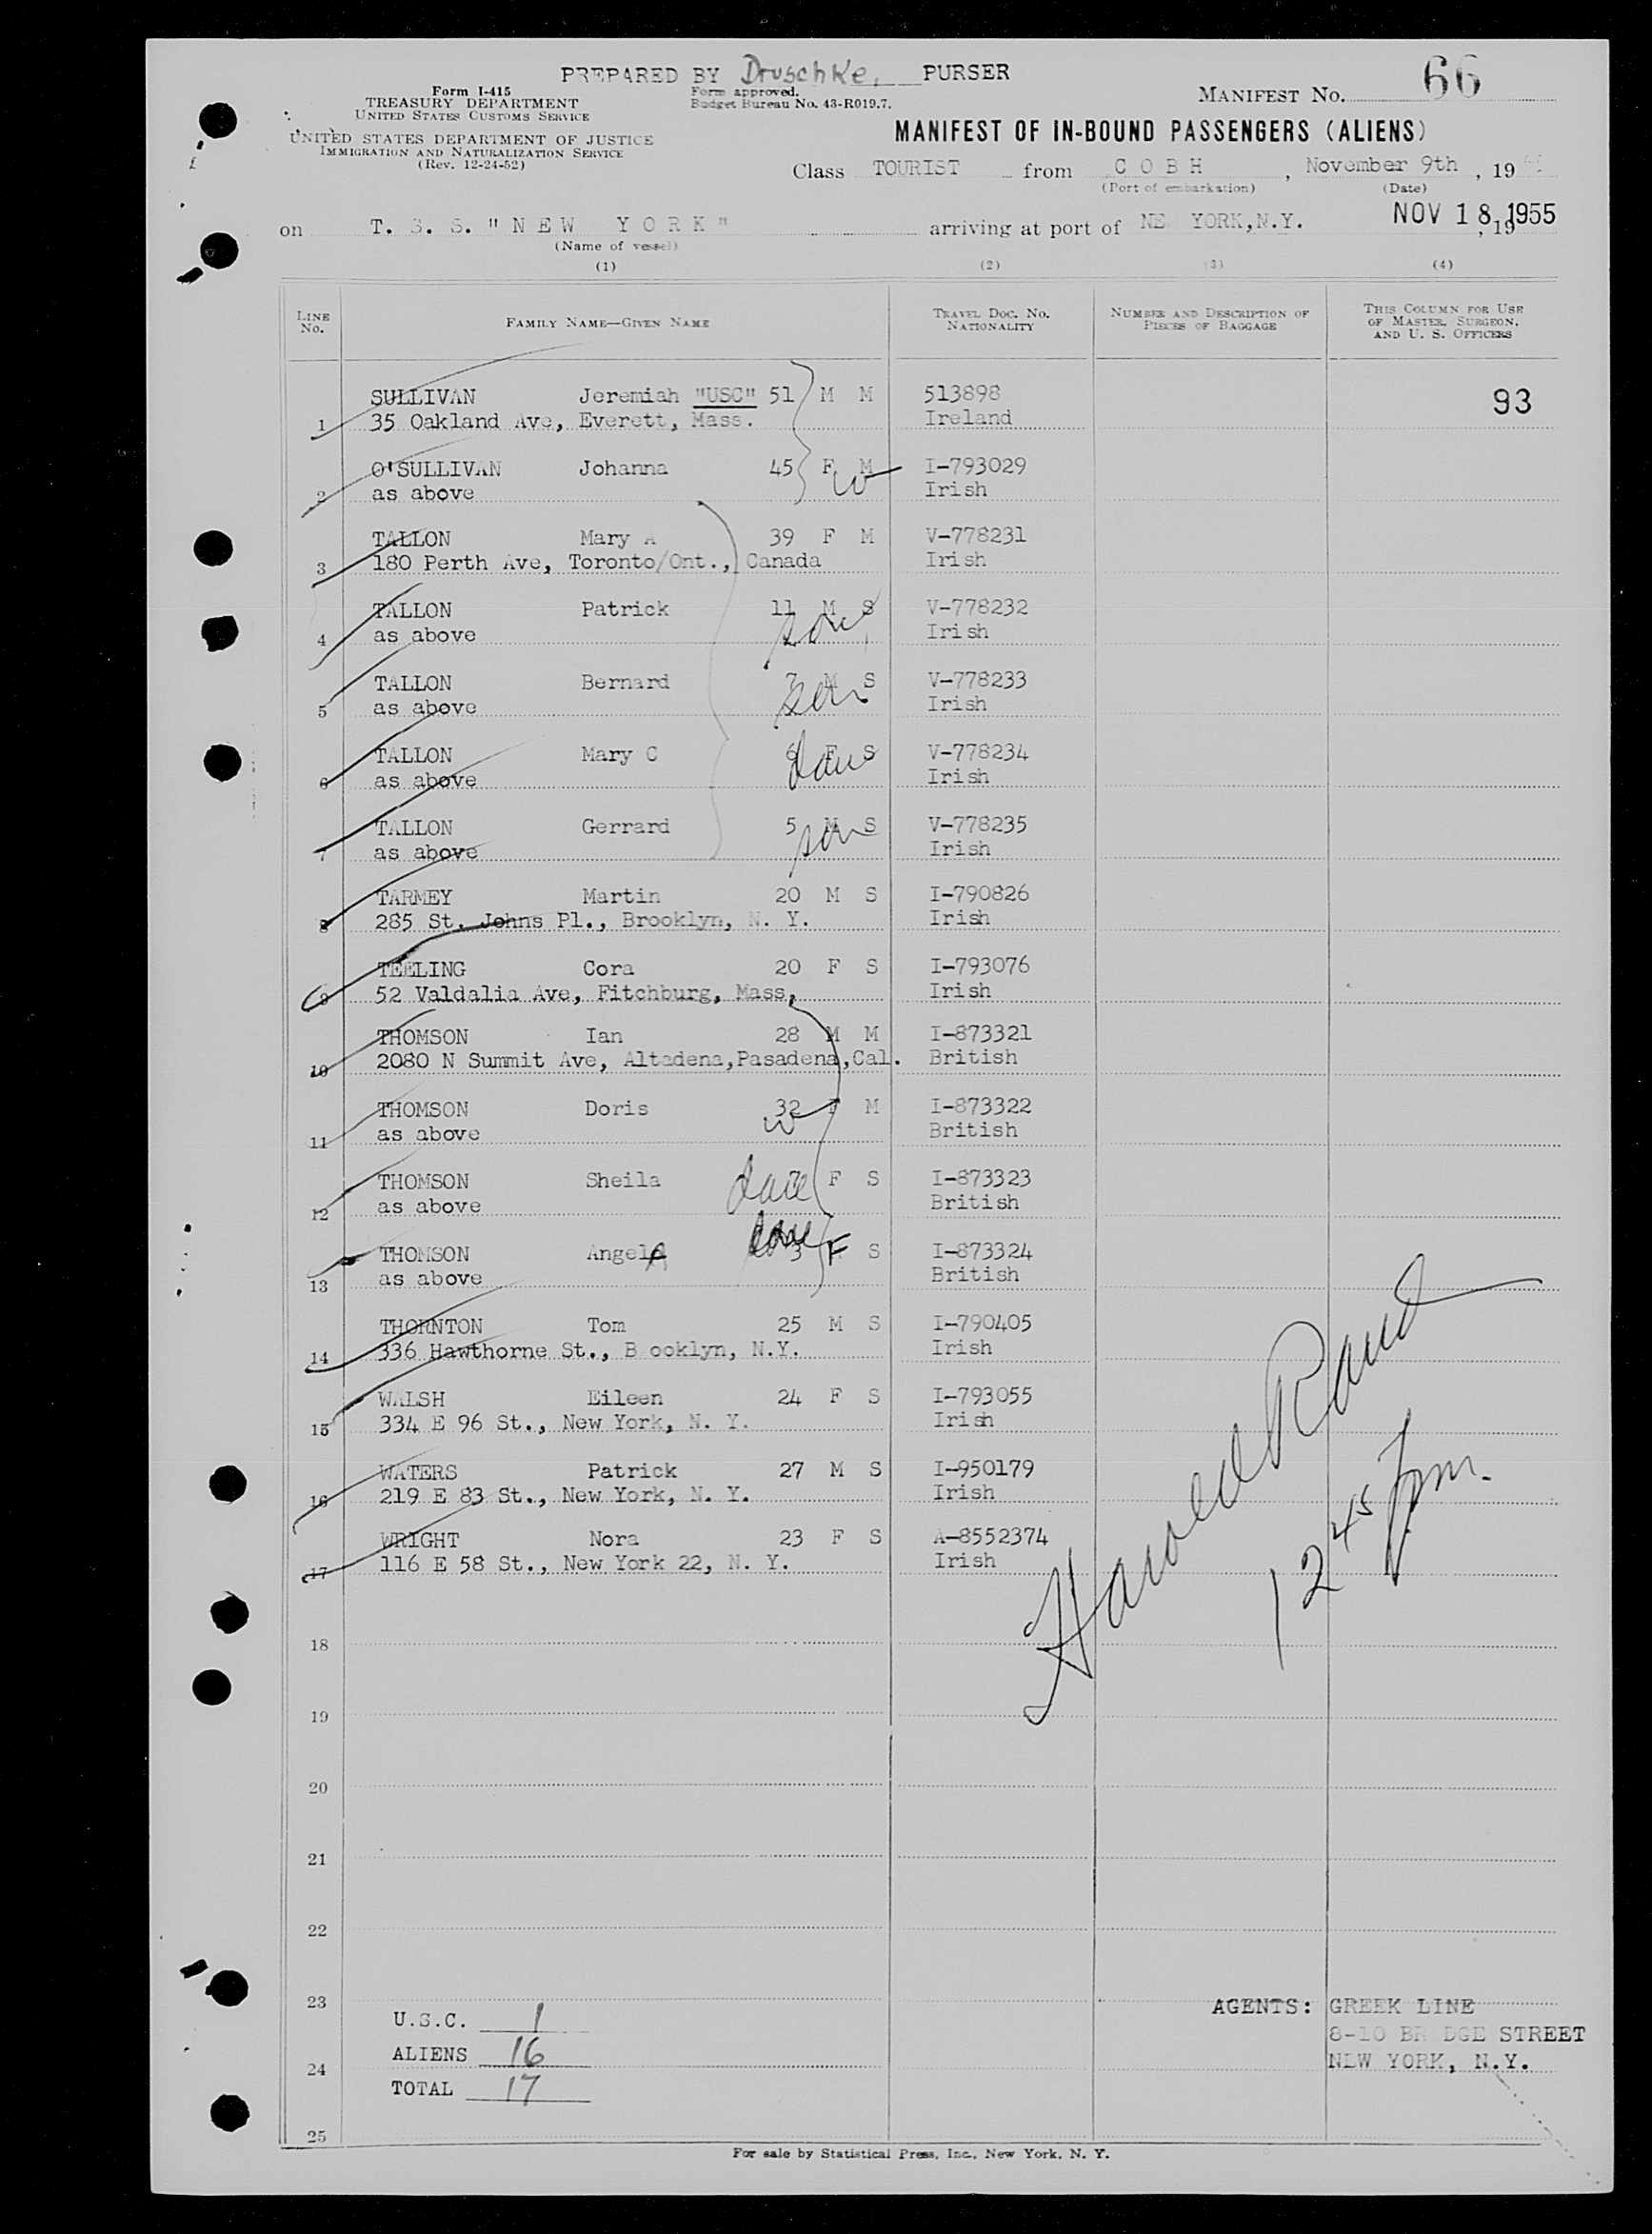 PREPARED BY Druschke, PURSER
Form I-415
TREASURY DEPARTMENT
UNITED STATES CUSTOMS SERVICE
UNITED STATES DEPARTMENT OF JUSTICE
IMMIGRATION AND NATURALIZATION SERVICE
(Rev. 12-24-52)
Form approved.
Budget Bureau No. 43-R019.7.
MANIFEST No. 66
MANIFEST OF IN-BOUND PASSENGERS (ALIENS)
Class TOURIST from C O B H , November 9th , 19
(Port of embarkation) (Date)
on T. S. S. "N E W Y O R K" arriving at port of NE YORK, N.Y. NOV 18 1955 , 19
(Name of vessel)
(1) (2) (3) (4)
LINE No. FAMILY NAME—GIVEN NAME TRAVEL DOC. No. NATIONALITY NUMBER AND DESCRIPTION OF PIECES OF BAGGAGE THIS COLUMN FOR USE OF MASTER, SURGEON, AND U. S. OFFICERS
SULLIVAN Jeremiah "USC" 51 M M 513898 93
1 35 Oakland Ave, Everett, Mass. Ireland
O'SULLIVAN Johanna 45 F M W I-793029
2 as above Irish
TALLON Mary A 39 F M V-778231
3 180 Perth Ave, Toronto/Ont., Canada Irish
TALLON Patrick 11 M S son V-778232
4 as above Irish
TALLON Bernard 7 M S son V-778233
5 as above Irish
TALLON Mary C F S dau V-778234
6 as above Irish
TALLON Gerrard 5 M S son V-778235
7 as above Irish
TARMEY Martin 20 M S I-790826
8 285 St. Johns Pl., Brooklyn, N. Y. Irish
TEELING Cora 20 F S I-793076
9 52 Valdalia Ave, Fitchburg, Mass, Irish
THOMSON Ian 28 M M I-873321
10 2080 N Summit Ave, Altadena,Pasadena,Cal. British
THOMSON Doris 32 F M W I-873322
11 as above British
THOMSON Sheila dau F S I-873323
12 as above British
THOMSON Angela dau 3 F S I-873324
13 as above British
THORNTON Tom 25 M S I-790405
14 336 Hawthorne St., B ooklyn, N.Y. Irish
WALSH Eileen 24 F S I-793055
15 334 E 96 St., New York, N. Y. Irish
WATERS Patrick 27 M S I-950179
16 219 E 83 St., New York, N. Y. Irish
WRIGHT Nora 23 F S A-8552374
17 116 E 58 St., New York 22, N. Y. Irish
Harold Rand
12 45 pm.
18
19
20
21
22
23
U.S.C. 1
ALIENS 16
24
TOTAL 17
25
AGENTS: GREEK LINE
8-10 BR DGE STREET
NEW YORK, N.Y.
For sale by Statistical Press, Inc., New York, N. Y.